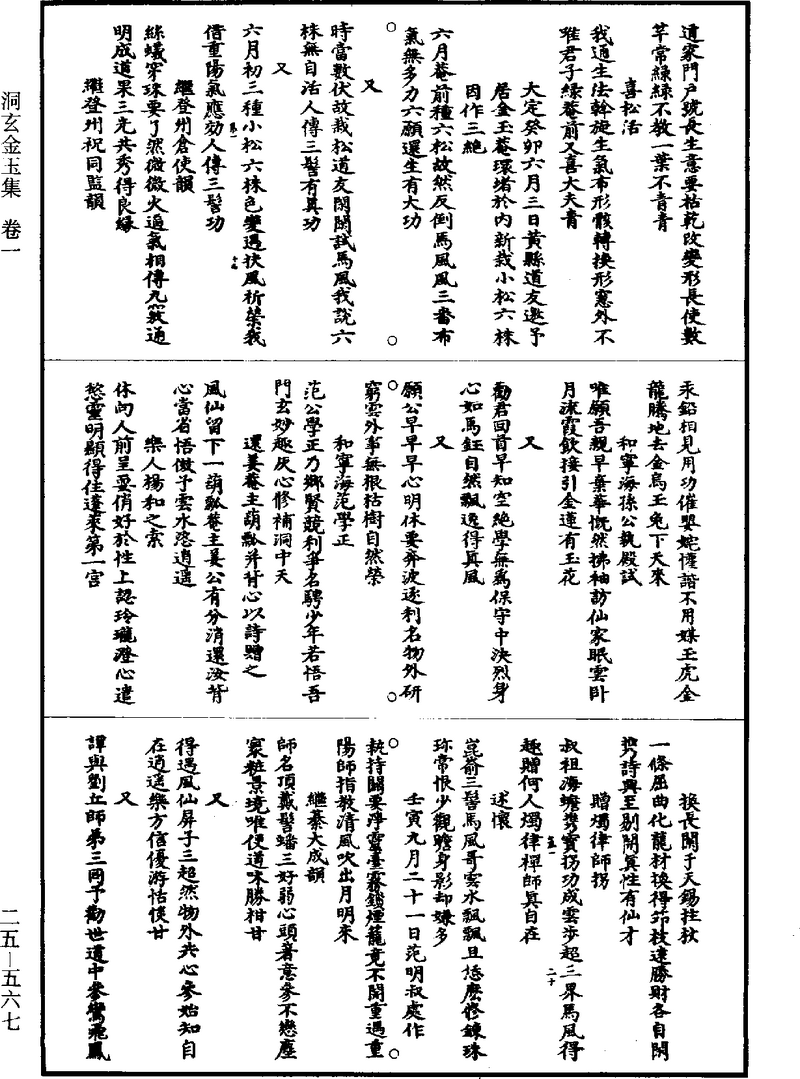 洞玄金玉集 卷一
二五—五六七
道家門戶號長生意要枯乾改變形長使數
莖常綠綠不教一葉不青青
喜松活
我通生法幹旋生氣布形骸轉換形寰外不
唯君子綠菴前又喜大夫青
大定癸卯六月三日黃縣道友邀予
居金玉菴環堵於內新栽小松六株
因作三絕
六月菴前種六松故然反倒馬風風三番布
氣無多力六願還生有大功
又
時當數伏故栽松道友閑閑試馬風我說六
株無自活人傳三髻有真功
又
六月初三種小松六株色變遇扶風祈榮我
借重陽氣應効人傳三髻功
繼登州倉使韻
絲蟻穿珠要了然微微火逼氣相傳九竅通
明成道果三光共秀得良緣
繼登州祝同監韻
汞鉛相見用功催嬰姹懽諧不用媒玉虎金
龍騰地去金烏玉兔下天來
和寧海孫公執殿試
唯願吾親早棄華慨然拂袖訪仙家眠雲卧
月流霞飲接引金蓮有玉花
又
勸君回首早知空絕學無爲保守中決烈身
心如馬鈺自然飄逸得真風
又
願公早早早心明休要奔波逐利名物外研
窮雲外事無根枯樹自然榮
和寧海范學正
范公學正乃鄉賢競利爭名騁少年若悟吾
門玄妙趣灰心修補洞中天
還姜菴主葫瓢并背心以詩贈之
風仙留下一葫瓢菴主姜公有分消還汝背
心當省悟倣子雲水恣逍遥
樂人楊和之索
休向人前呈耍俏好於性上認玲瓏澄心遣
慾靈明顯得住蓬萊第一宮
換長關子天錫拄杖
一條屈曲化龍材換得筇枝遠勝財各自閑
携詩興至剔閑真性有仙才
贈燭律師拐
叔祖海蟾携寶拐功成雲步超三界馬風得
趣贈何人燭律禪師真自在
述懷
崑嵛三髻馬風哥雲水飄飄且恁麽修鍊珠
珎常恨少觀瞻身影却嫌多
壬寅九月二十一日范明叔處作
執持關要淨靈臺霧鎖煙籠竟不開重遇重
陽師指教清風吹出月明來
繼綦大成韻
師名頂戴髻蟠三好弱心頭著意參不戀塵
寰粧景境唯便道味勝柑甘
又
得遇風仙屏子三超然物外共心參始知自
在逍遥樂方信優游恬惔甘
又
譚與劉丘師弟三同予勸世道中參鸞飛鳳